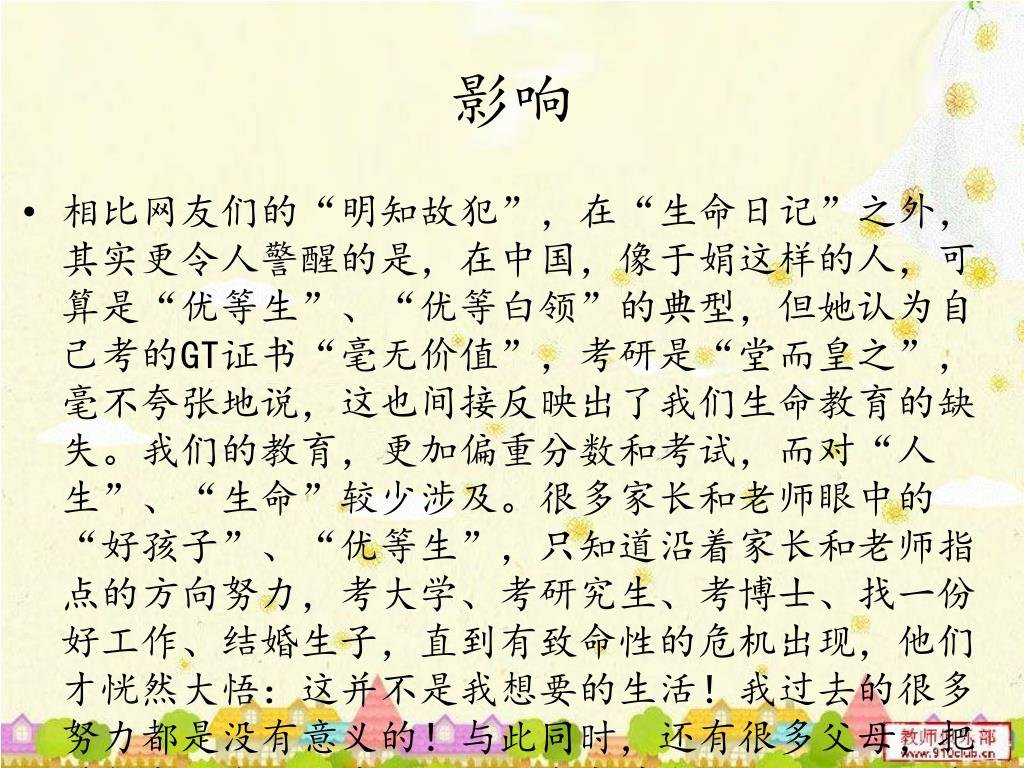 影响
• 相比网友们的“明知故犯”，在“生命日记”之外，
其实更令人警醒的是，在中国，像于娟这样的人，可
算是“优等生”、“优等白领”的典型，但她认为自
己考的GT证书“毫无价值”，考研是“堂而皇之”，
毫不夸张地说，这也间接反映出了我们生命教育的缺
失。我们的教育，更加偏重分数和考试，而对“人
生”、“生命”较少涉及。很多家长和老师眼中的
“好孩子”、“优等生”，只知道沿着家长和老师指
点的方向努力，考大学、考研究生、考博士、找一份
好工作、结婚生子，直到有致命性的危机出现，他们
才恍然大悟：这并不是我想要的生活！我过去的很多
努力都是没有意义的！与此同时，还有很多父母，把
教师俱乐部
www.910club.cn